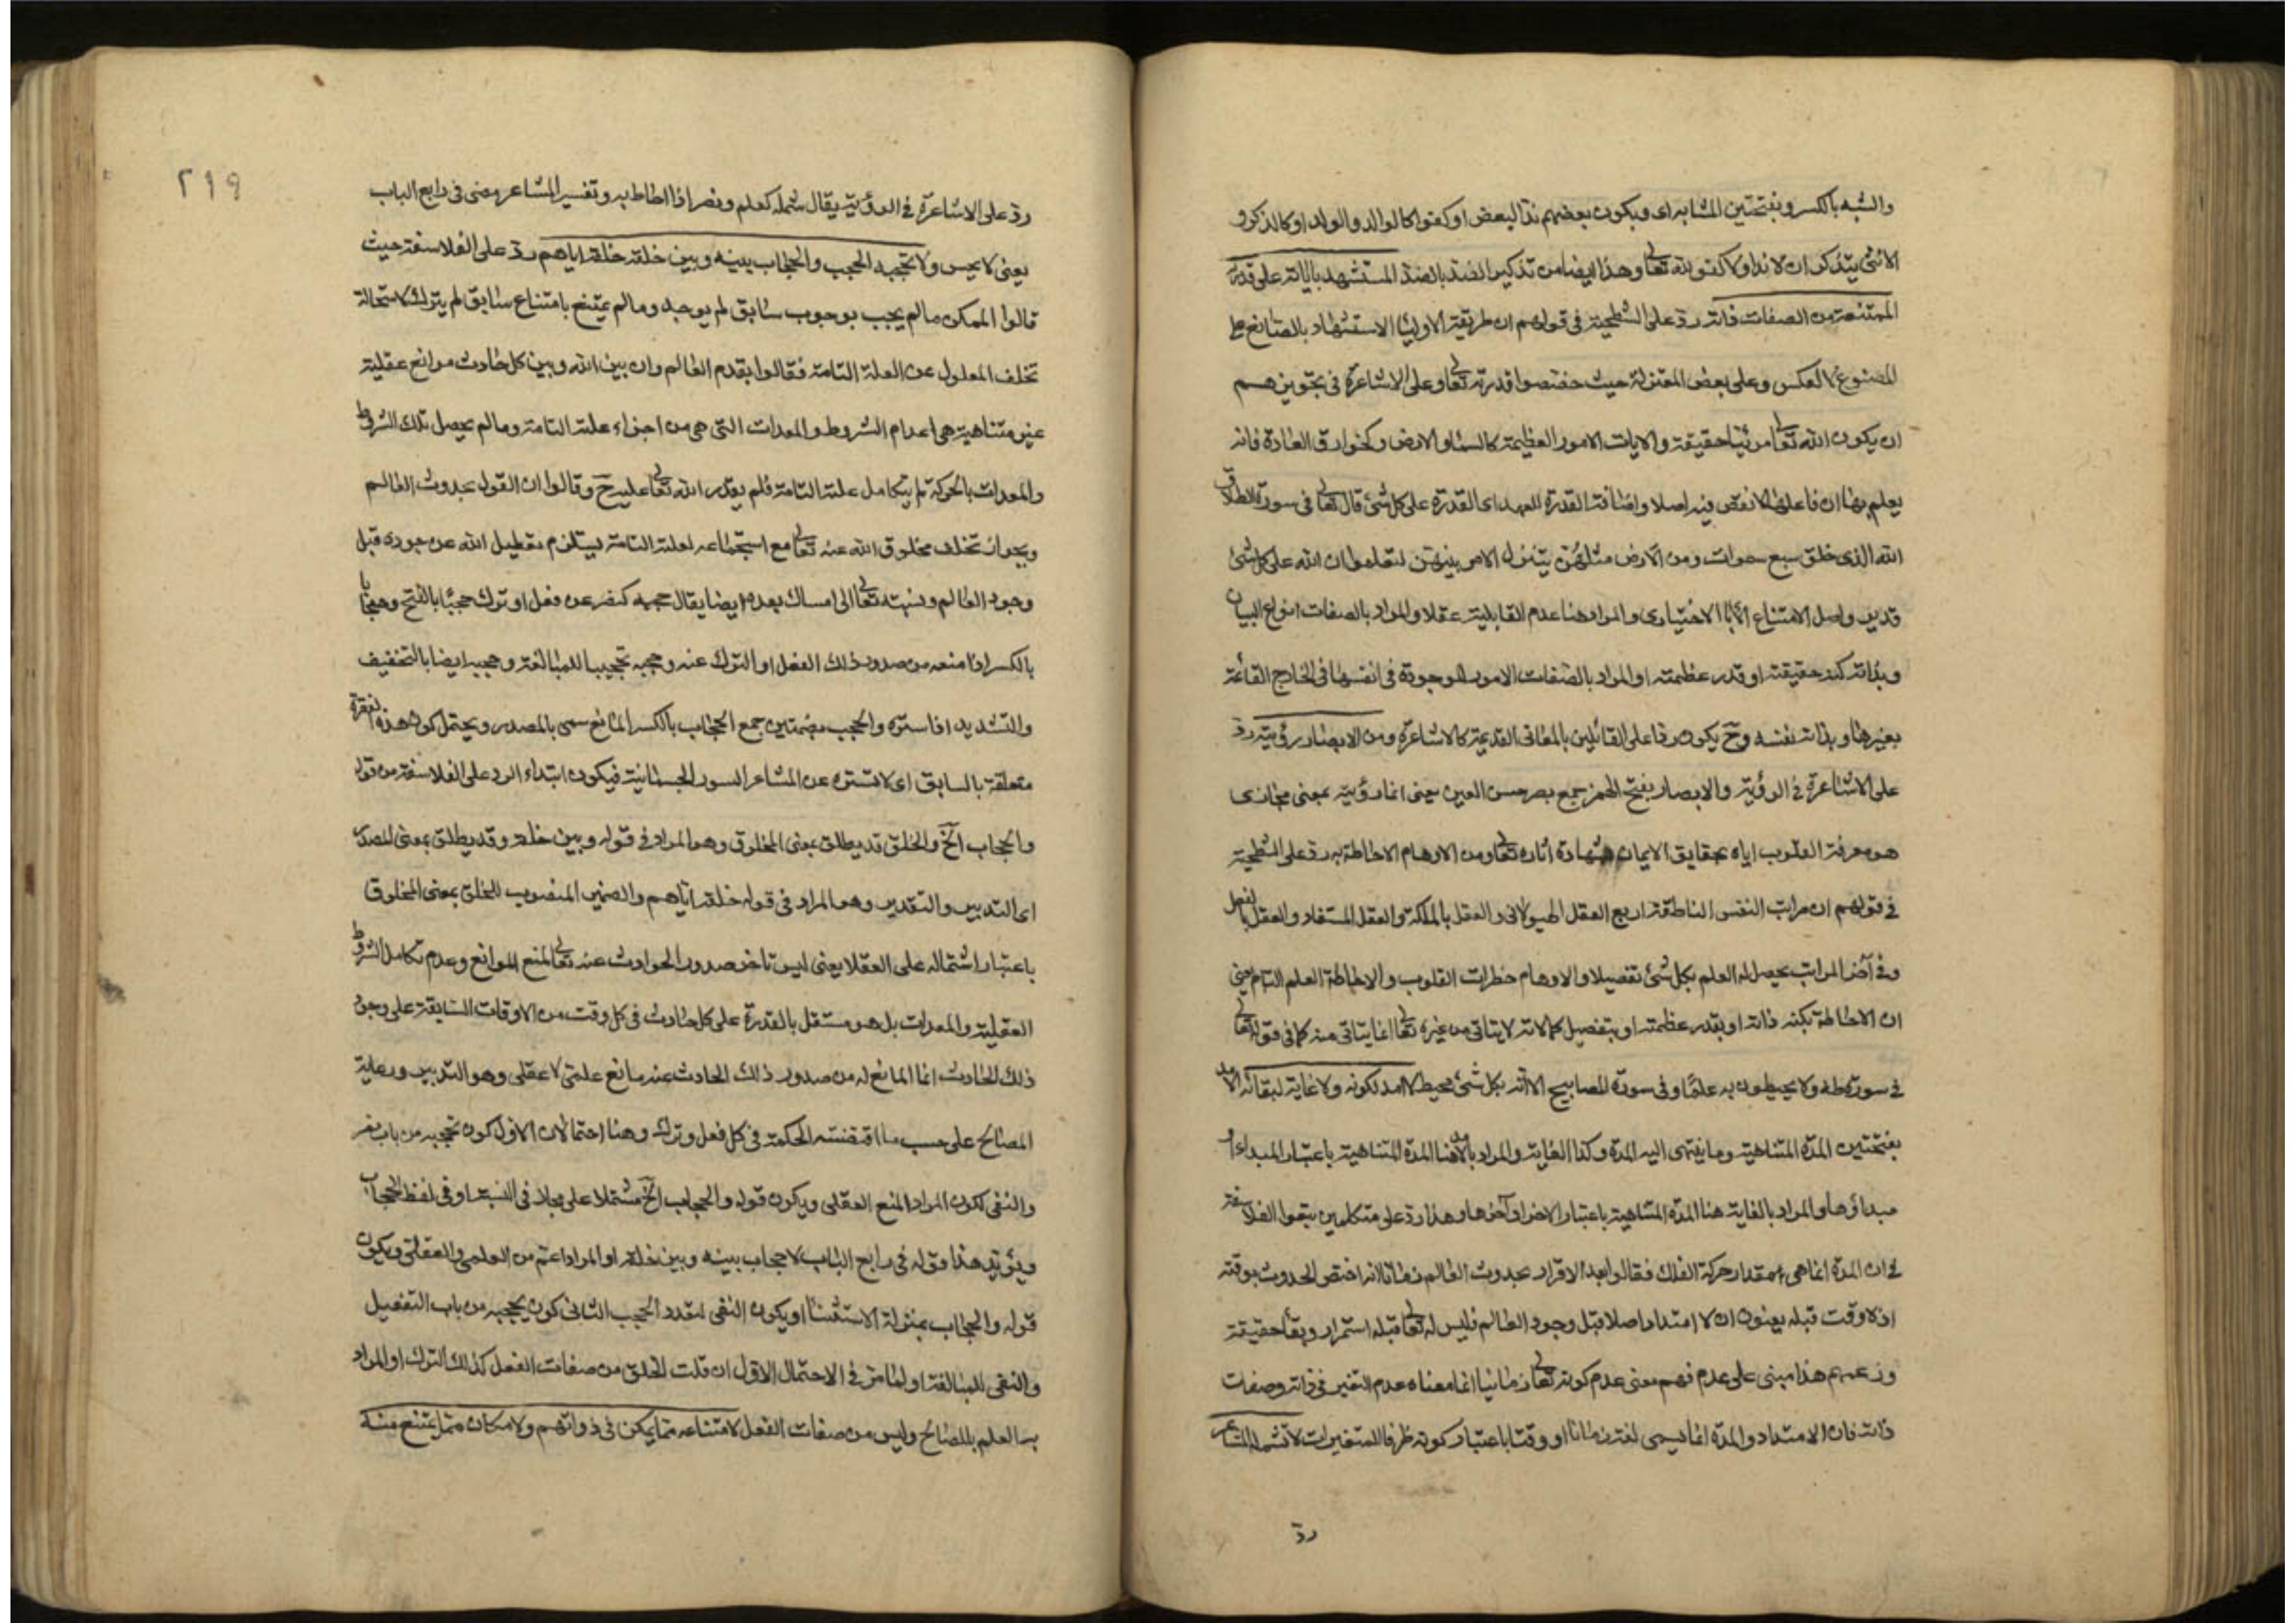 والشبه بالكسر وبفتحتين المشابه اى ويكون بعضهم ندّا لبعض او كفوا كالوالد والولد او كالذكر و
الانثى يتذكر ان لا ندا ولا كفو لله تعالى وهذا ايضا من تذكير الضد بالضد المستشهد باياته على قدرته
الممتنعة من الصفات ذاته ردّ على الشطحية فى قولهم ان طريقة الاوليا الاستشهاد بالصانع على
المصنوع لا العكس وعلى بعض المعتزلة حيث خصصوا قدرته تعالى وعلى الاشاعرة فى تجويزهم
ان يكون الله تعالى مرئيا حقيقة والايات الامور العظيمة كالسما والارض وكخوارق العادة فانه
يعلم بها ان فاعلها لا نقص فيه اصلا واضافة القدرة للعهد اى القدرة على كل شئ قال تعالى فى سورة الطلاق
الله الذى خلق سبع سموات ومن الارض مثلهن يتنزل الامر بينهن لتعلموا ان الله على كل شئ
قدير واصل الامتناع الابا الاختيارى والمراد هنا عدم القابلية عقلا والمراد بالصفات انواع البيان
وبذاته كنه حقيقته او قدر عظمته او المراد بالصفات الامور الموجودة فى انفسها فى الخارج القائمة
بغيرها وبذاته نفسه وح يكون ردا على القائلين بالمعانى القديمة كالاشاعرة ومن الابصار رؤيته ردّ
على الاشاعرة فى الرؤية والابصار بفتح الهمز جمع بصر حس العين يعنى انما رؤيته بمعنى مجازى
هو معرفة القلوب اياه بحقايق الايمان وشهادة اثاره تعالى ومن الاوهام الاحاطة به ردّ على الشطحية
فى قولهم ان مراتب النفس الناطقة اربع العقل الهيولانى والعقل بالملكة والعقل المستفاد والعقل بالفعل
وفى آخر المراتب يحصل له العلم بكل شئ تفصيلا والاوهام خطرات القلوب والاحاطة العلم التام يعنى
ان الاحاطة بكنه ذاته او بقدر عظمته او بتفصيل كمالاته لا يتاتى من غيره تعالى انما يتاتى منه كما فى قوله تعالى
فى سورة طه ولا يحيطون به علمًا وفى سورة المصابيح الا انه بكل شئ محيط لا امد لكونه ولا غاية لبقائه الامد
بفتحتين المدة المتناهية وما ينتهى اليه المدة وكذا الغاية والمراد بالامد هنا المدة المتناهية باعتبار المبداء او
مبداؤها والمراد بالغاية هنا المدة المتناهية باعتبار الاخر او آخرها وهذا ردّ على متكلمين تبعوا الفلاسفة
فى ان المدة انما هى مقدار حركة الفلك فقالوا بعد الاقرار بحدوث العالم زمانا انه اختص الحدوث بوقته
اذ لا وقت قبله يعنون ان لا امتداد اصلا قبل وجود العالم فليس له تعالى قبله استمرار وبقا حقيقة
وزعمهم هذا مبنى على عدم فهم معنى عدم كونه تعالى زمانيا انما معناه عدم التغير فى ذاته وصفات
ذاته فان الامتداد والمدة انما يسمى لغة زمانا او وقتا باعتبار كونه ظرفا للمتغيرات لا تشمله المشاعر
ردّ
٢١٩
ردّ على الاشاعرة فى الرؤية يقال شمله كعلم ونصر اذا احاط به وتفسير المشاعر مضى فى رابع الباب
يعنى لا يحس ولا تحجبه الحجب والحجاب بينه وبين خلقه خلقه اياهم ردّ على الفلاسفة حيث
قالوا الممكن ما لم يجب بوجوب سابق لم يوجد وما لم يمتنع بامتناع سابق لم يترك لاستحالة
تخلف المعلول عن العلة التامة فقالوا بقدم العالم وان بين الله وبين كل حادث موانع عقلية
غير متناهية هى اعدام الشروط والمعدات التى هى من اجزاء علته التامة وما لم يحصل تلك الشروط
والمعدات بالحركة لم يتكامل علته التامة فلم يقدر الله تعالى عليه ح وقالوا ان القول بحدوث العالم
وبجواز تخلف مخلوق الله عنه تعالى مع استجماعه لعلته التامة يستلزم تعطيل الله عن جوده قبل
وجود العالم ونسبته تعالى الى امساك بعده ايضا يقال حجبه كنصر عن فعل او ترك حجبًا بالفتح وحجابا
بالكسر اذا منعه من صدور ذلك الفعل او الترك عنه وحجبه تحجيبا للمبالغة وحجبه ايضا بالتخفيف
والتشديد اذا ستره والحجب بضمتين جمع الحجاب بالكسر المانع سمى بالمصدر ويحتمل كون هذه الفقرة
متعلقة بالسابق اى لا تستره عن المشاعر الستور الجسمانية فيكون ابتداء الرد على الفلاسفة من قوله
والحجاب الخ والخلق قد يطلق بمعنى المخلوق وهو المراد فى قوله وبين خلقه وقد يطلق بمعنى المصدر
اى التدبير والتقدير وهو المراد فى قوله خلقه اياهم والضمير المنصوب للخلق بمعنى المخلوق
باعتبار اشتماله على العقلا يعنى ليس تاخر صدور الحوادث عنه تعالى لمنع الموانع وعدم تكامل الشروط
العقلية والمعدات بل هو مستقل بالقدرة على كل حادث فى كل وقت من الاوقات السابقة على وجود
ذلك الحادث انما المانع له من صدور ذلك الحادث عنه مانع علمى لا عقلى وهو التدبير ورعاية
المصالح على حسب ما اقتضته الحكمة فى كل فعل وترك وهنا احتمالان الاول كون تحجبه من باب نصر
والنفى لكون المراد المنع العقلى ويكون قوله والحجاب الخ مشتملا على مجاز فى النسبة او فى لفظ الحجاب
ويؤيد هذا قوله فى رابع الباب لا حجاب بينه وبين خلقه او المراد اعم من العلمى والعقلى ويكون
قوله والحجاب بمنزلة الاستثنا او يكون النفى لتعدد الحجب الثانى كون يحجبه من باب التفعيل
والنفى للمبالغة او لما مر فى الاحتمال الاول ان قلت الخلق من صفات الفعل كذلك الترك او المراد
به العلم بالمصالح وليس من صفات الفعل لامتناعه مما يمكن فى ذواتهم ولامكان مما يمتنع منه